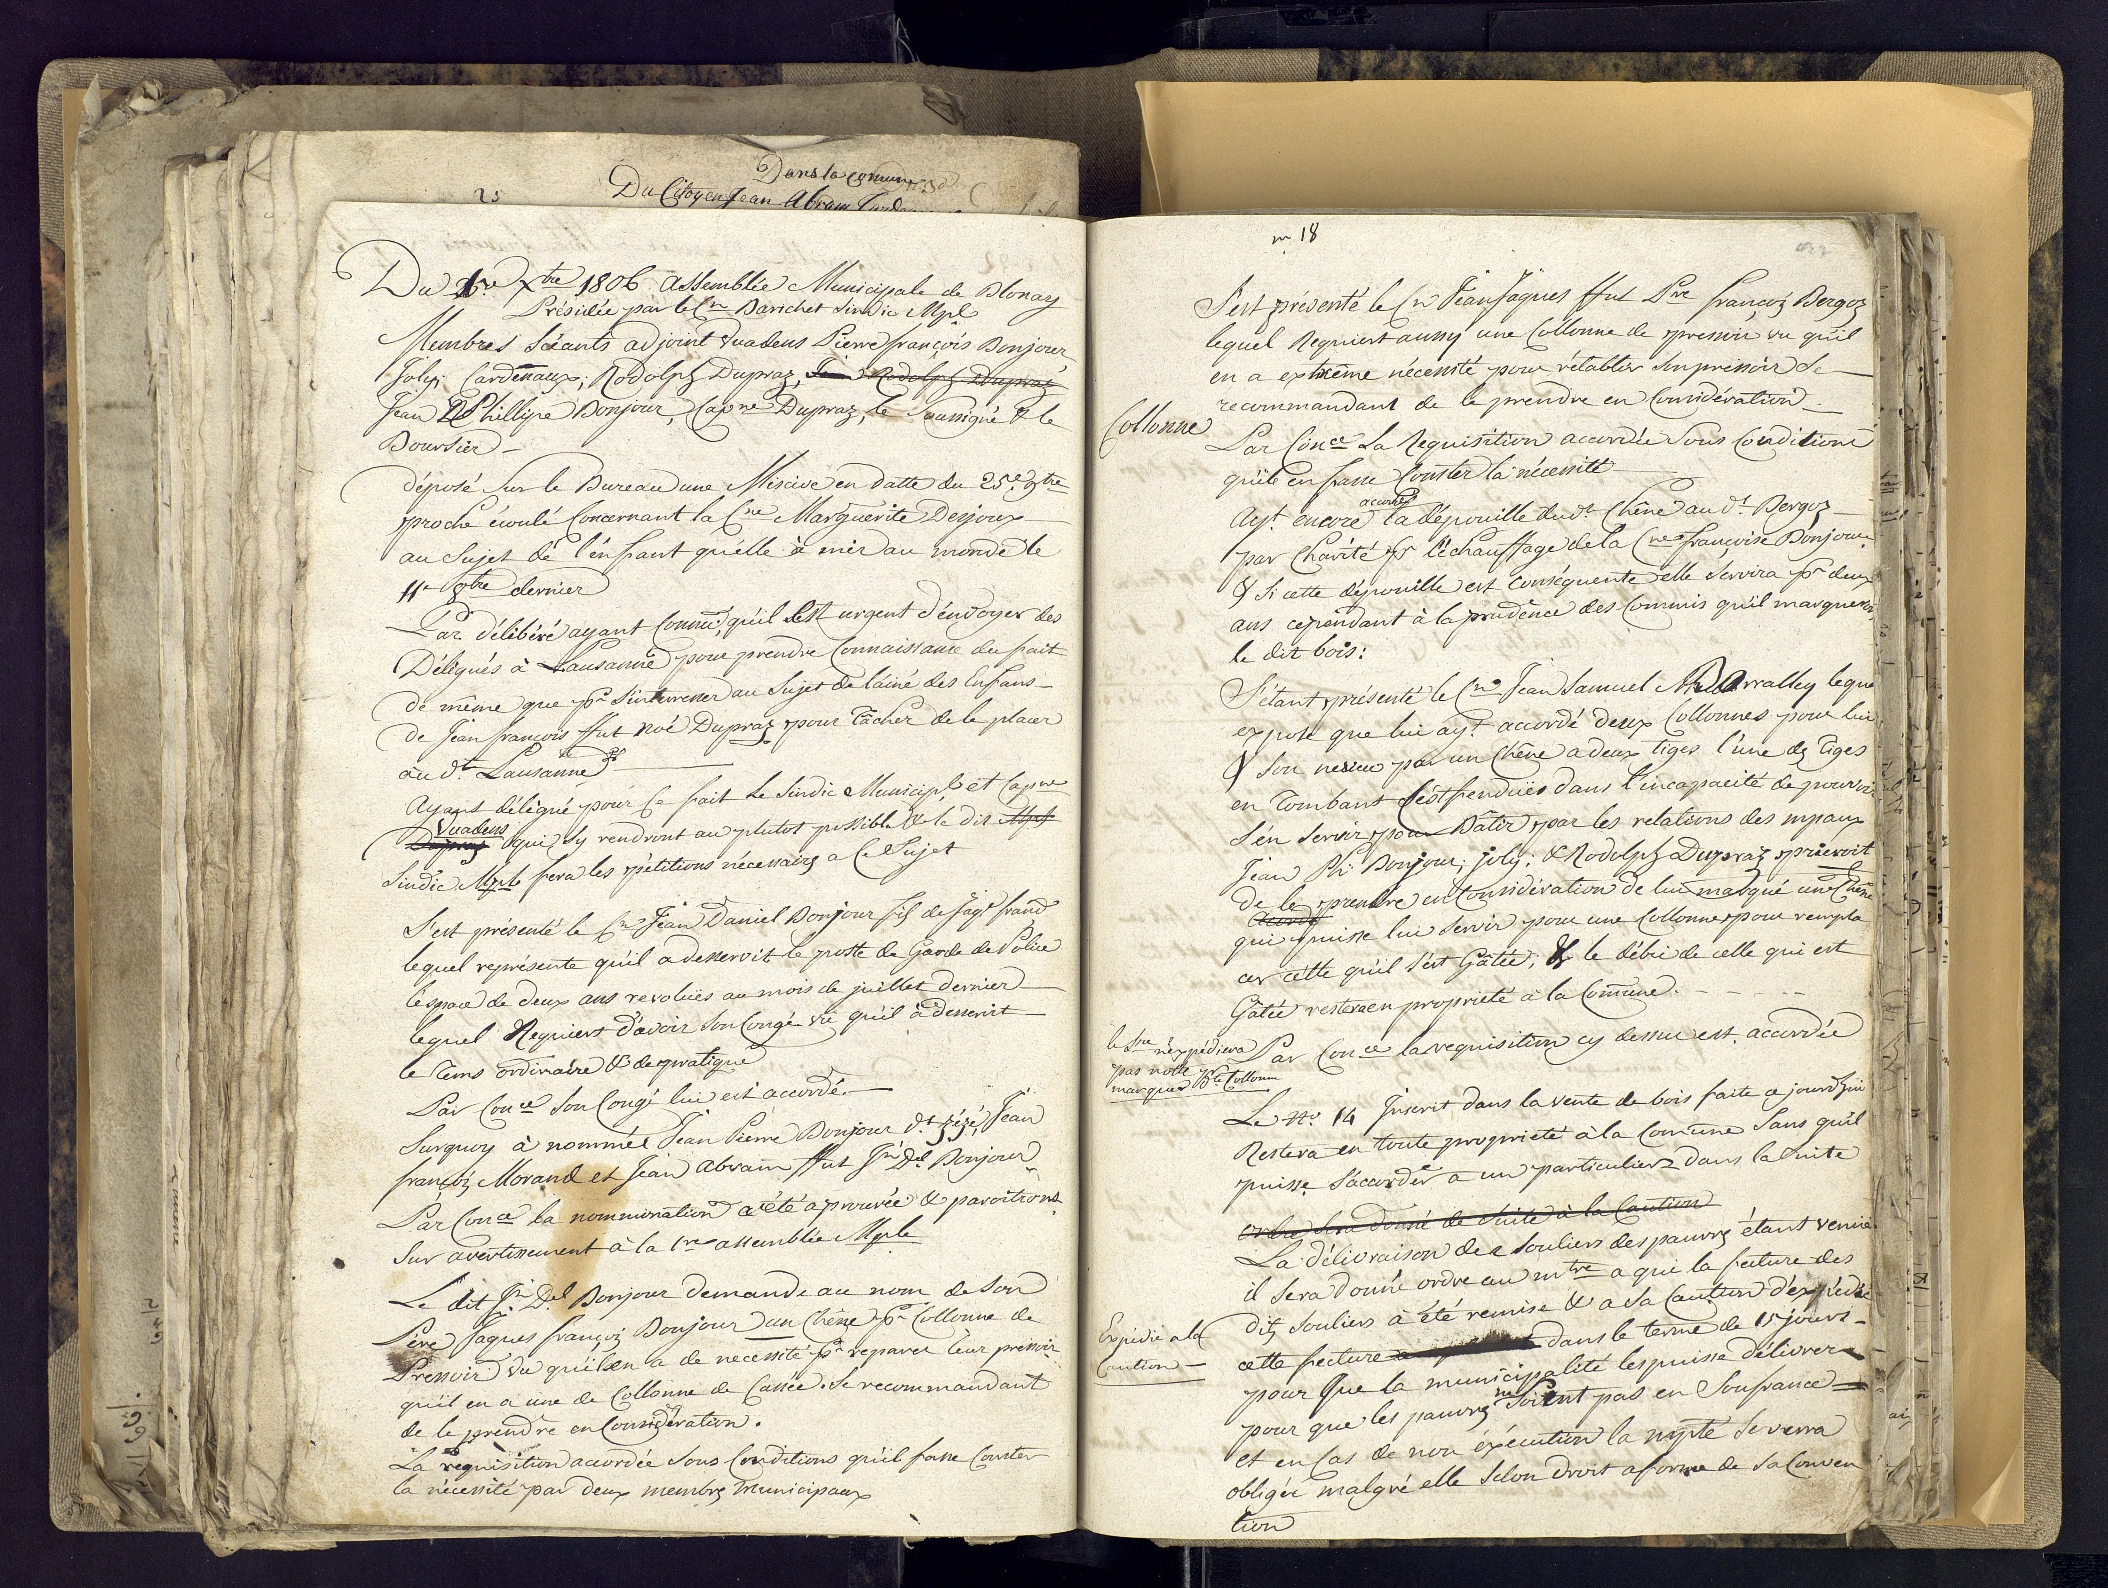 Dans la comune
25
Du Citoyen Jean Abram
Du 1er Xbre 1806. assemblée Municipale de Blonay
Présidée par le Cn Barichet Sindic Mpl
Membres Séants adjoint Vuadens Pierre françois Bonjour,
Joly; Cardenaux; Rodolph Dupraz, Rodolph Dupraz
Jean Phillipe Bonjour, Capne Dupraz, le Soussigné & le
Boursier –
déposé Sur le Bureau une Miscive en datte du 25e 9bre
proche écoulé Concernant la Cne Marguérite Desjoux
au Sujet de l'enfant qu'elle à mis au monde le
11e 8bre dernier
Par délibéré ayant Connu, qu'il Est urgent d'envoyer des
Délégués à Lausanne pour prendre Connaissance du fait
de même que pr S'interresser au Sujet de l'ainé des Enfans
de Jean françois ffut Noé Dupraz pour Tâcher de le placer
au dt Lausanne
Ayant délégué pour Ce fait le Sindic Municipl et Capne
Vuadens
Dupraz qui Sy rendront au plutot possible & le dit Mpl
Sindic Mple fera les pétitions nécessairs a Ce Sujet
S'est présenté le Cn Jean Daniel Bonjour fils de Jaqs frans
lequel représente qu'il a desservit le poste de Garde de Police
l'espace de deux ans revolües au mois de juillet dernier
lequel Requiert d'avoir Son Congé vu qu'il à desservit
le Tems ordinaire & de pratique
Par Conce Son Congé lui est accordé.
Surquoy à nommés Jean Pierre Bonjour dt zézé, Jean
françois Morand et Jean Abram ffut Jn Dl Bonjour
Par Conce la nommination a été aprouvée & paroitront
Sur avertissement à la 1re assemblée Mple
Le dit Jn Dl Bonjour demande au nom de Son
Père Jaques françois Bonjour un Chêne pr Collonne de
Pressoir vu qu'il en a de necessité pr reparer leur pressoir
qu'il en a une de Collonne de Cassée. Se recommandant
de le prendre en Considération.
La requisition accordée Sous Conditions qu'il fasse Conster
la nécessité par deux membrs Municipaux
n 18
S'est présenté le Cn Jean Jaques ffut Pre françois Bergoz
lequel Requiert aussy une Collonne de pressoir vu qu'il
en a extrême nécessité pour rétablir Son pressoir Se
recommandant de le prendre en Considération
Collonne
Par Conce La Requisition accordée Sous Conditions
qu'ile en fasse Conster la nécessité
accordé
Ayt encore la dépouille du dt Chêne au dt Bergoz
par Charité pr l'échauffage de la Cne françoise Bonjour
& Si cette dépouille est conséquente elle Servira pr deux
ans cependant à la prudence des Commis qu'il marqueront
le dit bois:
S'étant présenté le Cn Jean Samuel lequel
expose que lui ayt accordé deux Collonnes pour lui
& Son neveu par un Chêne a deux tiges l'une ds Tiges
en Tombant S'est fendües dans l'incapacité de pouvoir
s'en Servir pour Bâtir par les relations des mpaux
Jean Ph Bonjour; joly; & Rodolph Dupraz prieroit
de le prendre en Considération de lui marqué une Chêne
accordé
qui puisse lui Servir pour une Collonne pour rempla
cer cette qu'il S'est Gâtée; & le débri de celle qui est
Gâtée restera en propriété à la Comune.
le Sre n'expédiera
pas notte pr
marquer Collonne
Par Conce la requisition cy dessu est accordée
Le No 14 Inscrit dans la vente de bois faite ajourd'hui
Restera en toute propriété à la Comune Sans qu'il
puisse S'accorder a un particulier dans la Suite
ordre Sera donné de Suite à la Caution
La délivraison des Souliers des pauvrs étant venüe
il Sera donné ordre au mtre a qui la facture des
dits Souliers à été remise & a Sa Caution d'expédié
Expédié a la
Caution –
cette facture dans le terme de 15 jours
pour Que la municipalité les puisse délivrer
pour que les pauvrs ne Soient pas en Soufrance
et en Cas de non éxécution la mpté Se verra
obligée malgré elle Selon Droit a forme de Sa Conven
tion